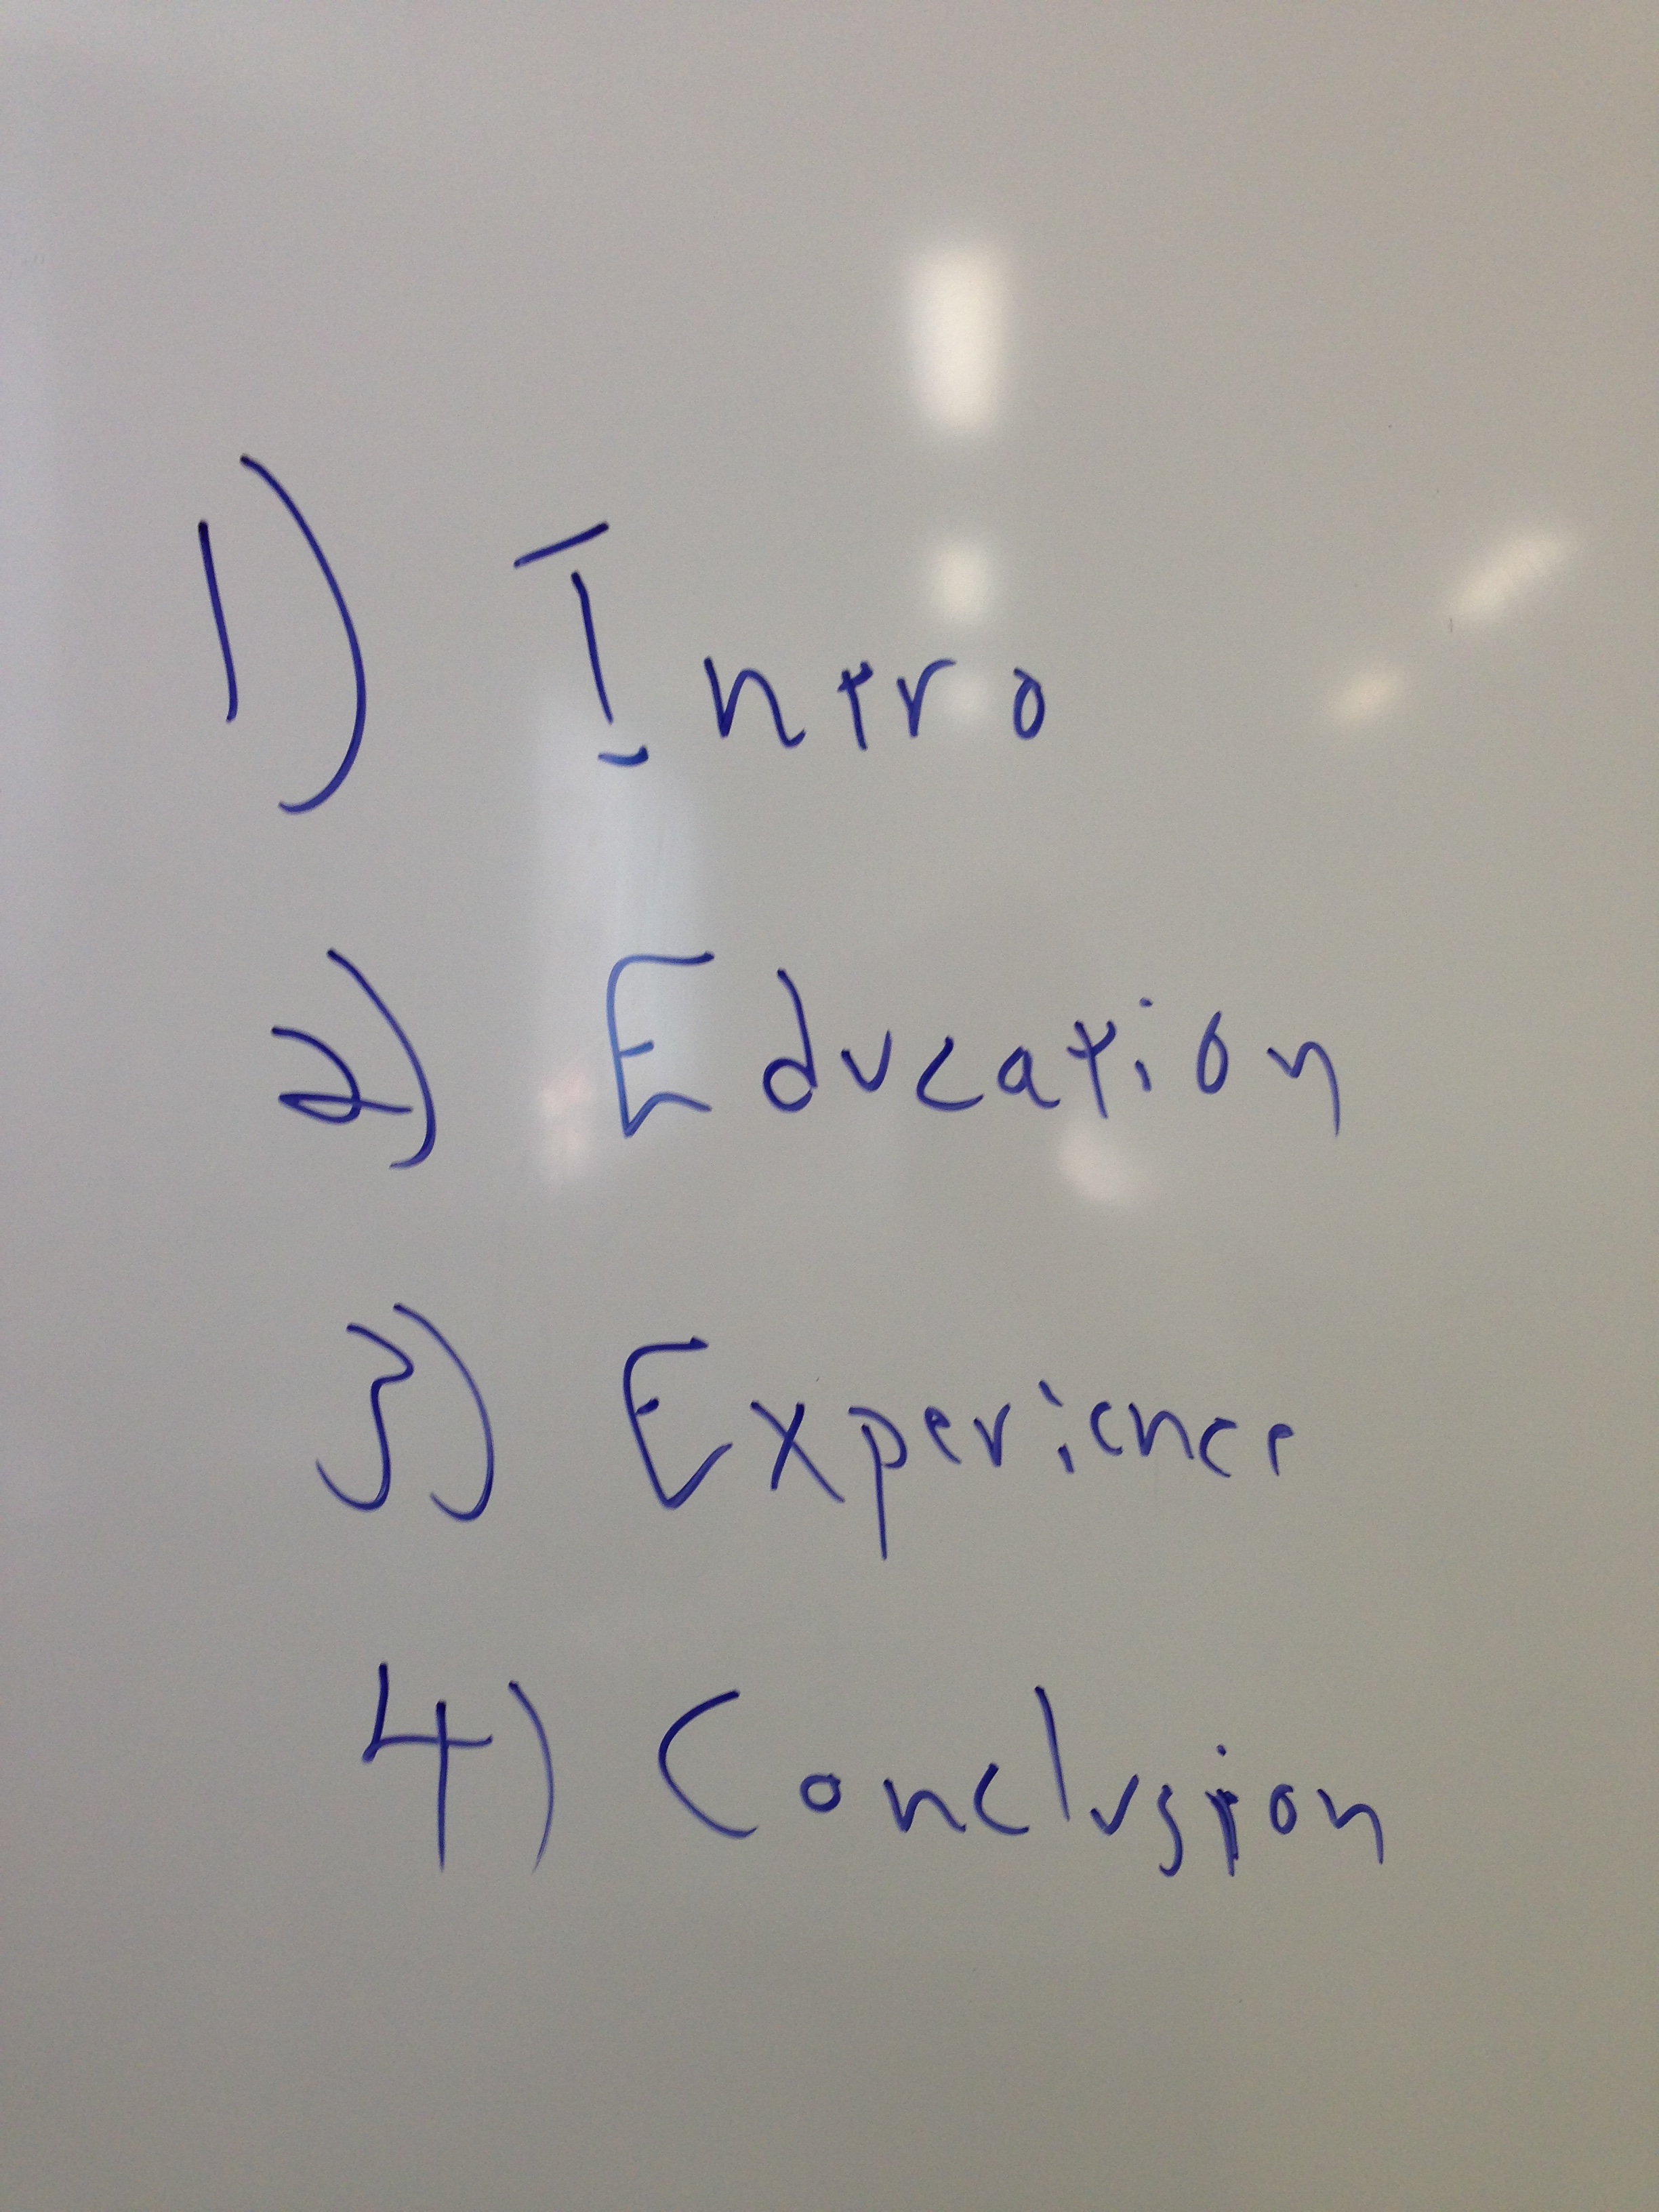 1) Intro
2) Education
3) Experience
4) Conclusion